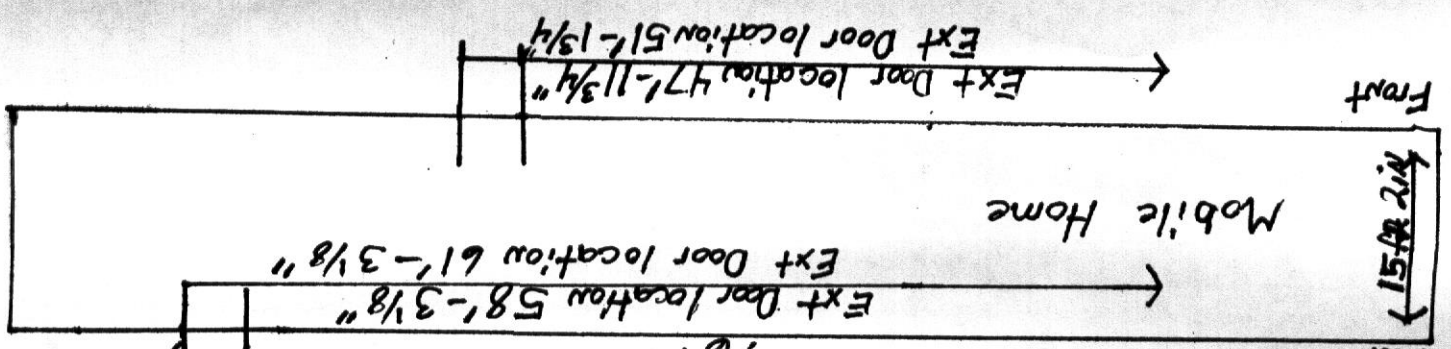 Ext Door location 58'-3 1/8"
Ext Door location 61'-3 1/8"
Mobile Home
15 ft 2in
Front
Ext Door location 47'-11 3/4"
Ext Door location 51'-1 3/4"